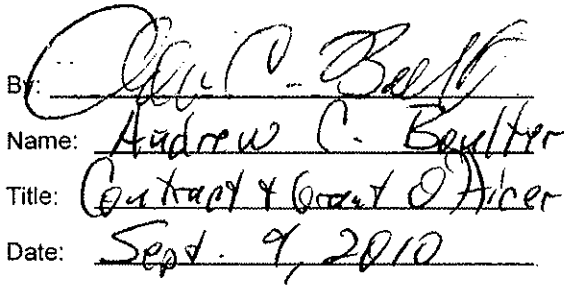 By: C. Boulter
Name: Andrew C. Boulter
Title: Contract & Grant Officer
Date: Sept. 9, 2010